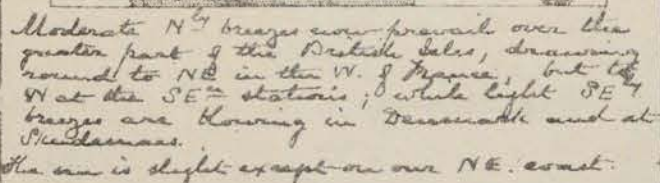 Moderate Nly breezes now prevail over the
greater part of the British Isles, drawing
round to NE in the W. of France, but to
W at the SEn stations; while light SEly
breezes are blowing in Denmark and at
Skudesnaes.
The sea is slight except on our NE. coast.